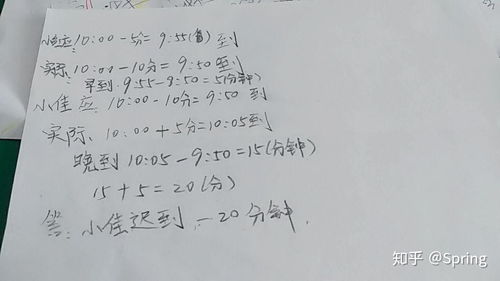 小应:10:00-5分=9:55(省)到
实际:10:00-10分=9:50到
早到:9:55-9:50=5(分钟)
小佳应:10:00-10分=9:50到
实际:10:00+5分=10:05到
晚到10:05-9:50=15(分钟)
15+5=20(分)
答:小佳迟到20分钟.
知乎 @Spring